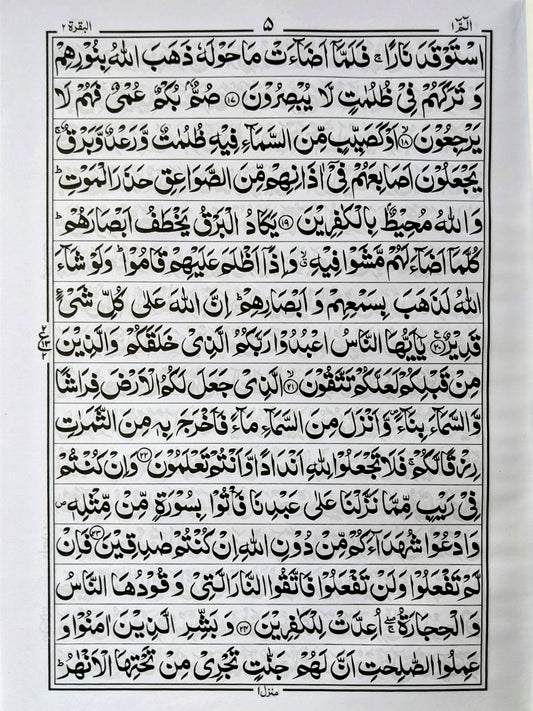 الٓمّٓ ١ ۵ البقرة ٢
اسْتَوْقَدَ نَارًا ۚ فَلَمَّاۤ اَضَآءَتْ مَا حَوْلَهٗ ذَهَبَ اللهُ بِنُوْرِهِمْ
وَ تَرَكَهُمْ فِيْ ظُلُمٰتٍ لَّا يُبْصِرُوْنَ ﴿١٧﴾ صُمٌّۢ بُكْمٌ عُمْيٌ فَهُمْ لَا
يَرْجِعُوْنَ ۙ﴿١٨﴾ اَوْ كَصَيِّبٍ مِّنَ السَّمَآءِ فِيْهِ ظُلُمٰتٌ وَّرَعْدٌ وَّبَرْقٌ ۚ
يَجْعَلُوْنَ اَصَابِعَهُمْ فِيْۤ اٰذَانِهِمْ مِّنَ الصَّوَاعِقِ حَذَرَ الْمَوْتِ ؕ
وَ اللهُ مُحِيْطٌۢ بِالْكٰفِرِيْنَ ﴿١٩﴾ يَكَادُ الْبَرْقُ يَخْطَفُ اَبْصَارَهُمْ ؕ
كُلَّمَاۤ اَضَآءَ لَهُمْ مَّشَوْا فِيْهِ ۙۗ وَ اِذَاۤ اَظْلَمَ عَلَيْهِمْ قَامُوْا ؕ وَ لَوْ شَآءَ
اللهُ لَذَهَبَ بِسَمْعِهِمْ وَ اَبْصَارِهِمْ ؕ اِنَّ اللهَ عَلٰى كُلِّ شَيْءٍ
قَدِيْرٌ ﴿٢٠﴾ يٰۤاَيُّهَا النَّاسُ اعْبُدُوْا رَبَّكُمُ الَّذِيْ خَلَقَكُمْ وَ الَّذِيْنَ
٢ ع ١٣ ٢
مِنْ قَبْلِكُمْ لَعَلَّكُمْ تَتَّقُوْنَ ۙ﴿٢١﴾ الَّذِيْ جَعَلَ لَكُمُ الْاَرْضَ فِرَاشًا
وَّ السَّمَآءَ بِنَآءً ۪ وَّ اَنْزَلَ مِنَ السَّمَآءِ مَآءً فَاَخْرَجَ بِهٖ مِنَ الثَّمَرٰتِ
رِزْقًا لَّكُمْ ۚ فَلَا تَجْعَلُوْا لِلّٰهِ اَنْدَادًا وَّ اَنْتُمْ تَعْلَمُوْنَ ﴿٢٢﴾ وَ اِنْ كُنْتُمْ
فِيْ رَيْبٍ مِّمَّا نَزَّلْنَا عَلٰى عَبْدِنَا فَاْتُوْا بِسُوْرَةٍ مِّنْ مِّثْلِهٖ ۪
وَ ادْعُوْا شُهَدَآءَكُمْ مِّنْ دُوْنِ اللهِ اِنْ كُنْتُمْ صٰدِقِيْنَ ﴿٢٣﴾ فَاِنْ
لَّمْ تَفْعَلُوْا وَ لَنْ تَفْعَلُوْا فَاتَّقُوا النَّارَ الَّتِيْ وَقُوْدُهَا النَّاسُ
وَ الْحِجَارَةُ ۖۚ اُعِدَّتْ لِلْكٰفِرِيْنَ ﴿٢٤﴾ وَ بَشِّرِ الَّذِيْنَ اٰمَنُوْا وَ
عَمِلُوا الصّٰلِحٰتِ اَنَّ لَهُمْ جَنّٰتٍ تَجْرِيْ مِنْ تَحْتِهَا الْاَنْهٰرُ ؕ
منزل ١